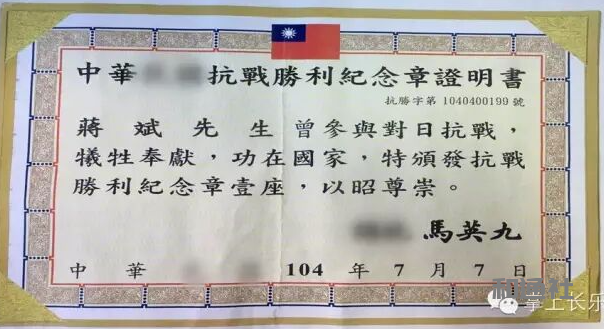 中華 抗戰勝利紀念章證明書
抗勝字第 1040400199 號
蔣斌先生曾參與對日抗戰，
犧牲奉獻，功在國家，特頒發抗戰
勝利紀念章壹座，以昭尊崇。
馬英九
中華 104 年 7 月 7 日
掌上长乐